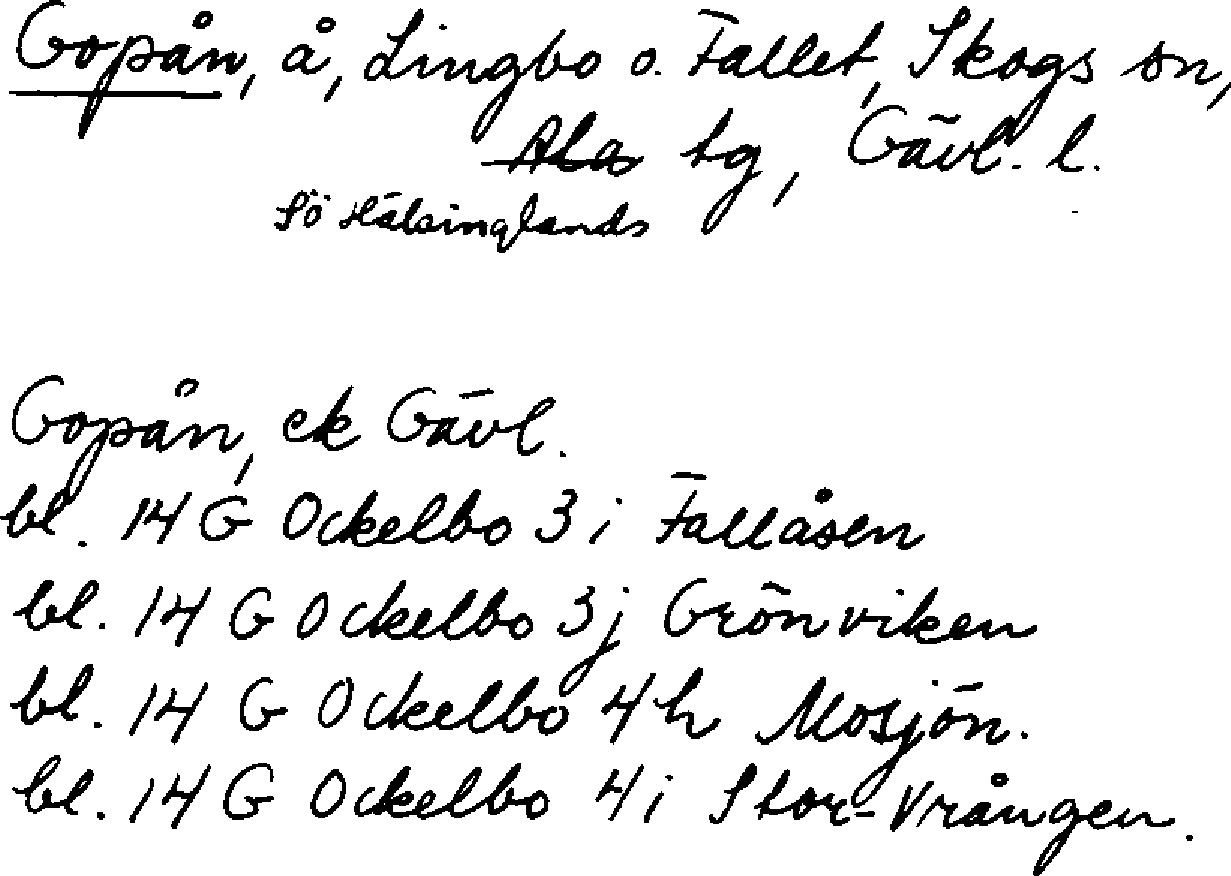 Gopån, å, Lingbo o. Fallet, Skogs sn,
Ala tg, Gävl. l.
Sö Hälsinglands
Gopån, ek Gävl.
bl. 14 G Ockelbo 3 i Fallåsen
bl. 14 G Ockelbo 3j Grönviken
bl. 14 G Ockelbo 4 h Mosjön.
bl. 14 G Ockelbo 4 i Stor-Vrången.